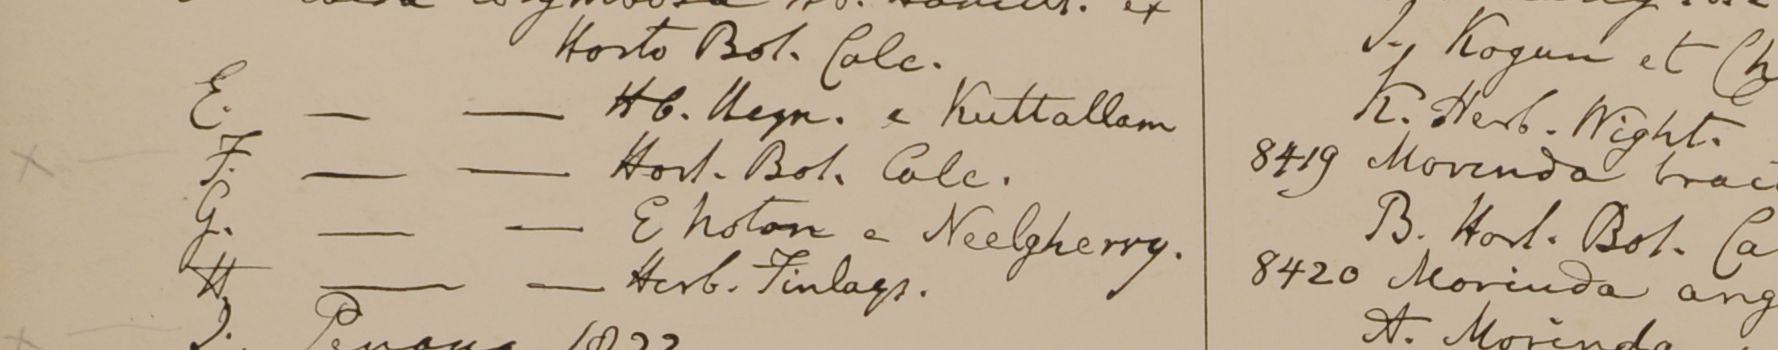 Horto Bot. Calc.
E. — — Hb. Heyn. e Kuttallam
F. — — Hort. Bot. Calc.
G. — — E Noton e Neelgherry.
H — — Herb. Finlays.
J. Penang 1822
J., Kogun et
K. Herb. Wight.
8419 Morinda bract
B. Hort. Bot. Ca
8420 Morinda ang
A. Morinda